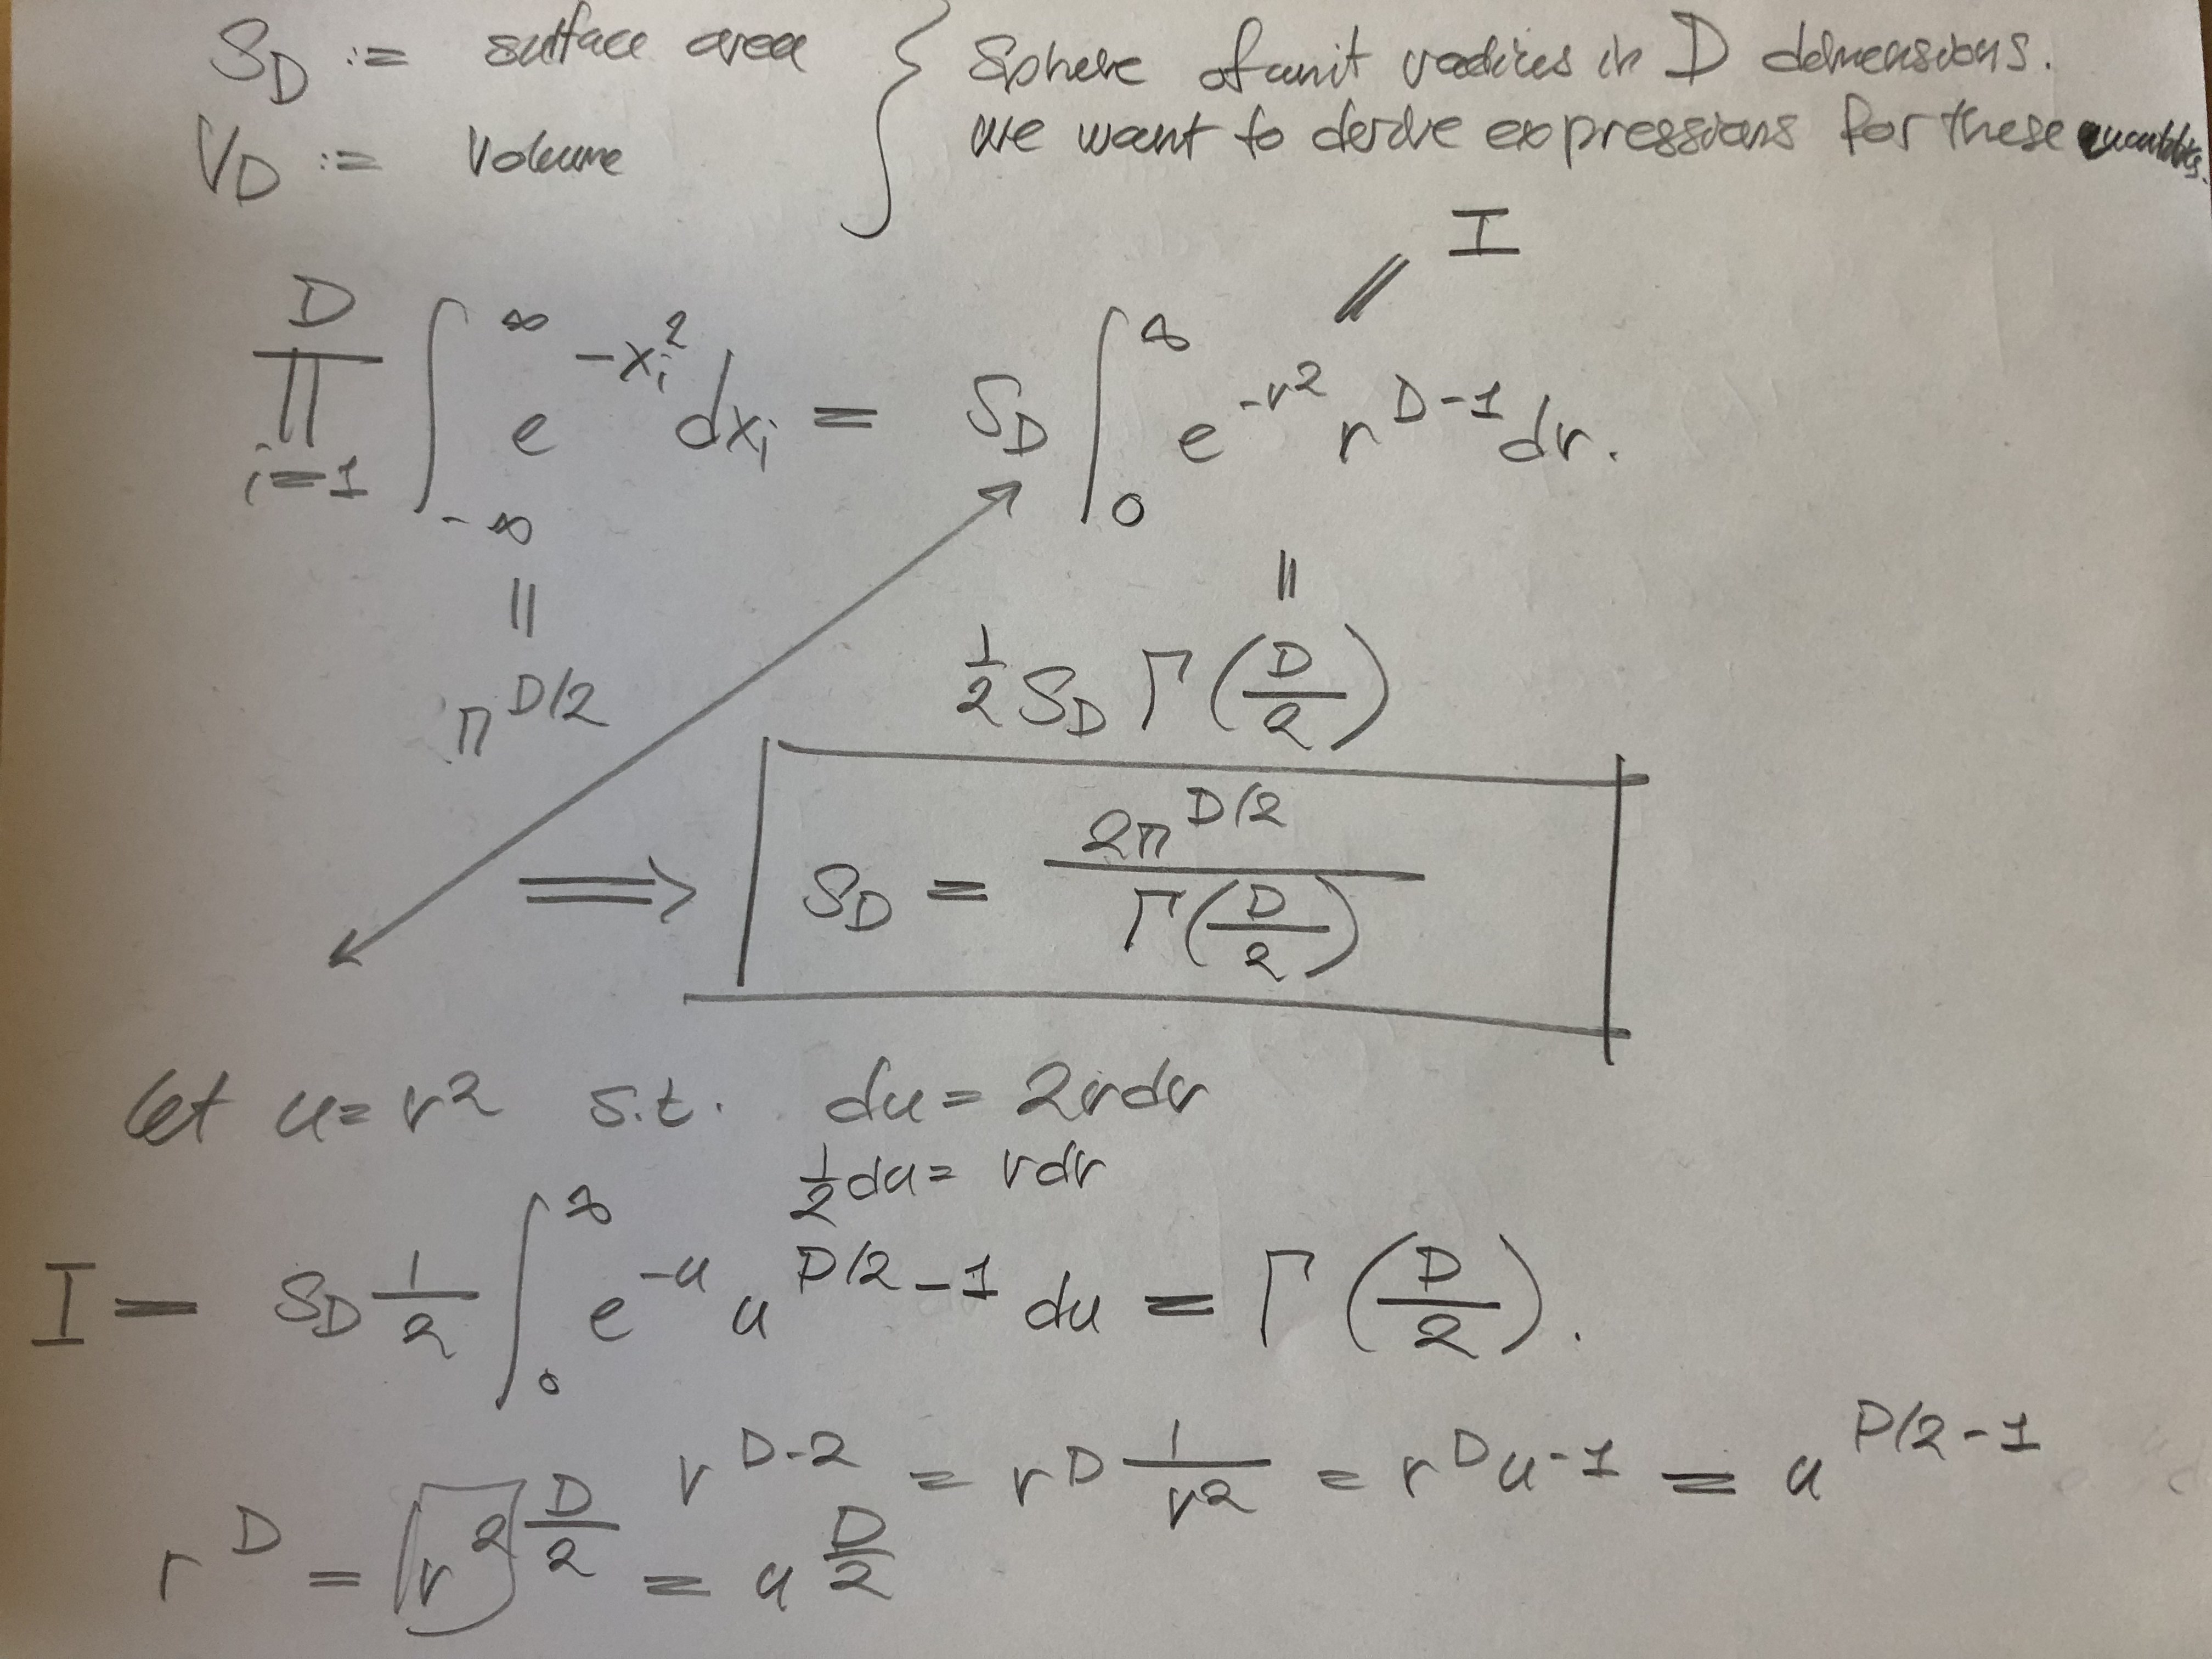 S_D := surface area { Sphere of unit radius in D dimensions.
V_D := Volume we want to derive expressions for these quantities.
= I
∏_{i=1}^{D} ∫_{-∞}^{∞} e^{-x_i^2} dx_i = S_D ∫_0^∞ e^{-r^2} r^{D-1} dr.
= =
π^{D/2} 1/2 S_D Γ(D/2)
⟹ S_D = 2π^{D/2} / Γ(D/2)
let u = r^2 s.t. du = 2rdr
1/2 du = rdr
I = S_D 1/2 ∫_0^∞ e^{-u} u^{D/2-1} du = Γ(D/2).
r^{D-2} = r^D 1/r^2 = r^D u^{-1} = u^{D/2-1}
r^D = [r^2]^{D/2} = u^{D/2}